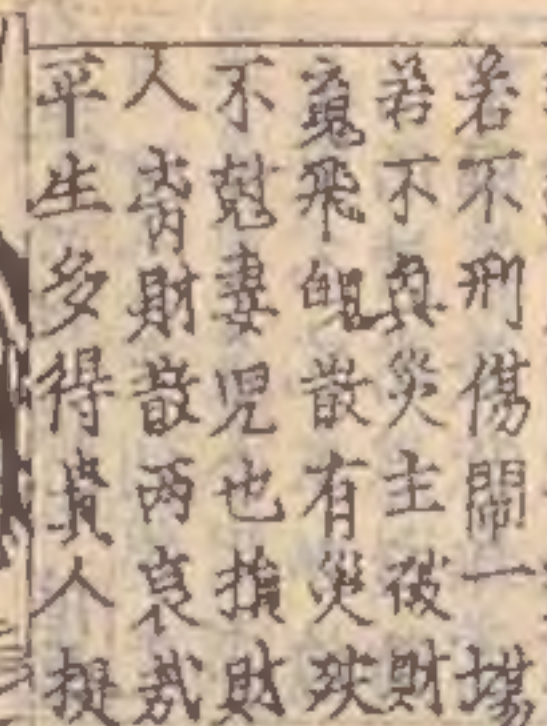 若不刑傷鬧一塲
若不真災主破財
䰟飛魄散有災殃
不尅妻児也損財
人啇財散兩哀哉
平生多得貴人擡